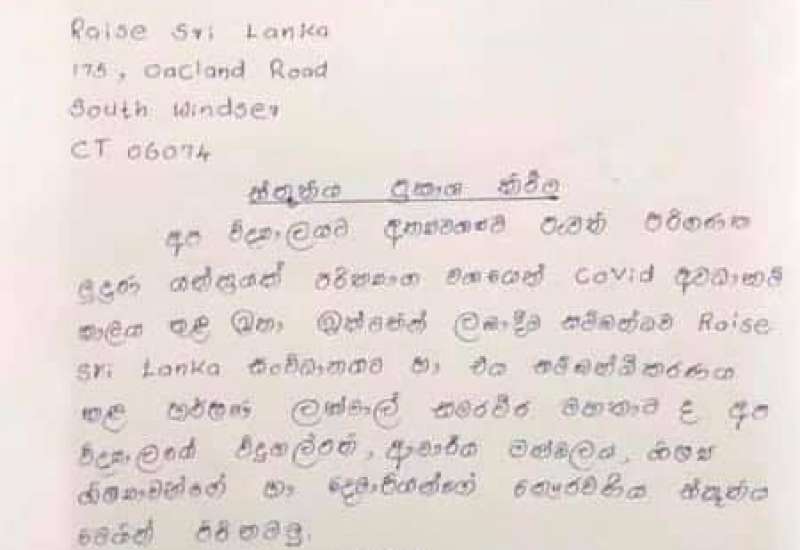 Raise Sri Lanka
175, Oacland Road
South Windser
CT 06074
ස්තූතිය ප්‍රකාශ කිරීම
අප විද්‍යාලයට අත්‍යවශ්‍යව පැවති පරිගණක
මුද්‍රණ යන්ත්‍රයක් පරිත්‍යාග වශයෙන් Covid අවධානම්
කාලය තුළ ලබාදීම සම්බන්ධව Raise
Sri Lanka සංවිධානයට හා එය සම්බන්ධීකරණය
කළ ලක්මාල් සමරවීර මහතාට ද අප
විද්‍යාලයේ විදුහල්පති, ආචාර්ය මණ්ඩලය, ශිෂ්‍ය
ශිෂ්‍යාවන්ගේ හා දෙමාපියන්ගේ ගෞරවණීය ස්තූතිය
මෙයින් පිරිනමමු.